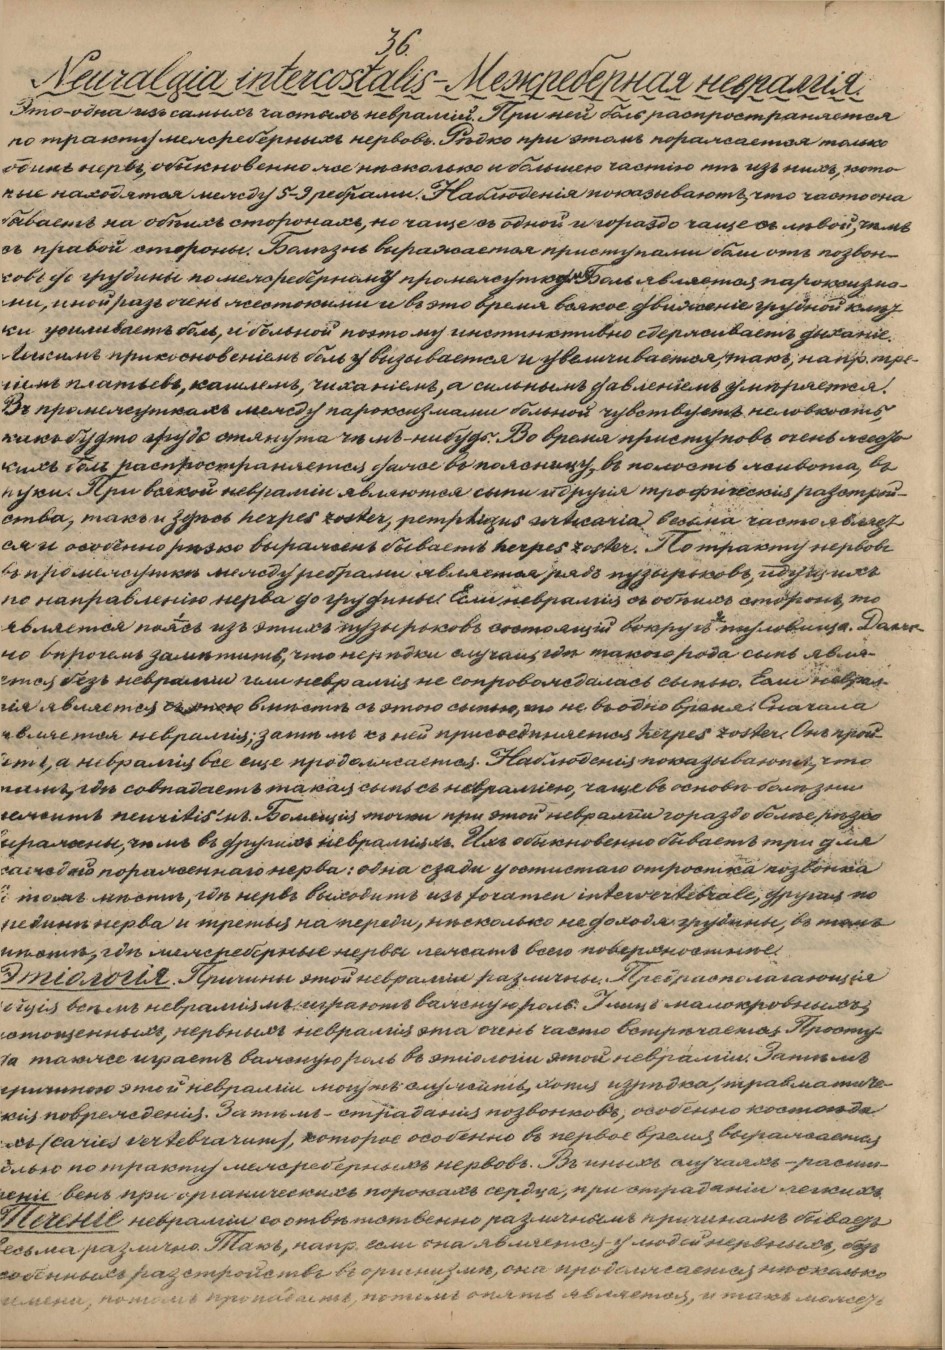 36.
Neuralgia intercostalis – Межреберная невралгія.
Это-одна изъ самыхъ частыхъ невралгій. При ней боль распространяется
по тракту межреберныхъ нервовъ. Рѣдко при этомъ поражается только
одинъ нервъ, обыкновенно же нѣсколько и большею частію тѣ изъ нихъ, кото-
рые находятся между 5-9 ребрами. Наблюденія показываютъ, что часто она
бываетъ на обѣихъ сторонахъ, но чаще съ одной и гораздо чаще съ лѣвой, чѣмъ
съ правой стороны. Болѣзнь выражается приступами боли отъ позвон-
ковъ до грудины по межреберному промежутку. Боль является пароксизма-
ми, иной разъ очень жестокими и въ это время всякое движеніе грудной клѣт-
ки усиливаетъ боль, и больной поэтому инстинктивно сдерживаетъ дыханіе.
Легкимъ прикосновеніемъ боль вызывается и увеличивается, такъ, напр. тре-
ніемъ платьевъ, кашлемъ, чиханіемъ, а сильнымъ давленіемъ умѣряется.
Въ промежуткахъ между пароксизмами больной чувствуетъ неловкость,
какъ будто грудь стянута чѣмъ-нибудь. Во время приступовъ очень жесто-
кихъ боль распространяется далѣе въ поясницу, въ полость живота, въ
руки. При всякой невралгіи являются сыпи и другія трофическія разстрой-
ства, такъ и здѣсь herpes zoster, pemphigus urticaria весьма часто являет-
ся и особенно рѣзко выраженъ бываетъ herpes zoster. По тракту нервовъ
въ промежуткѣ между ребрами является рядъ пузырьковъ, идущихъ
по направленію нерва до грудины. Если невралгія съ обѣихъ сторонъ, то
является поясъ изъ этихъ пузырьковъ состоящій вокругъ туловища. Должно
но впрочемъ замѣтить, что нерѣдки случаи, гдѣ такого рода сыпь явля-
ется безъ невралгіи или невралгія не сопровождалась сыпью. Если неврал-
гія является вмѣстѣ съ этою сыпью, то не въ одно время. Сначала
является невралгія; затѣмъ къ ней присоединяется herpes zoster. Онъ прой-
детъ, а невралгія все еще продолжается. Наблюденія показываютъ, что
тамъ, гдѣ совпадаетъ такая сыпь съ невралгіею, чаще въ основѣ болѣзни
лежитъ neuritis'ъ. Болящія точки при этой невралгіи гораздо болѣе рѣзко
выражены, чѣмъ въ другихъ невралгіяхъ. Ихъ обыкновенно бываетъ три для
каждаго пораженнаго нерва: одна сзади у остистаго отростка позвонка
въ томъ мѣстѣ, гдѣ нервъ выходитъ изъ foramen intervertebrale, другая по
срединѣ нерва и третья на переди, нѣсколько не доходя грудины, въ томъ
мѣстѣ, гдѣ межреберные нервы лежатъ всего поверхностнѣе.
Этіологія. Причины этой невралгіи различны. Предрасполагающія
ко всѣмъ невралгіямъ играютъ важную роль. У лицъ малокровныхъ,
истощенныхъ, нервныхъ невралгія эта очень часто встрѣчается. Просту-
да также играетъ важную роль въ этіологіи этой невралгіи. Затѣмъ
причиною этой невралгіи могутъ служить, хотя изрѣдка, травматиче-
скія поврежденія. Затѣмъ – страданія позвонковъ, особенно костоѣда
ихъ (caries vertebrarum), которое особенно въ первое время выражается
болью по тракту межреберныхъ нервовъ. Въ иныхъ случаяхъ – расши-
реніе венъ при органическихъ порокахъ сердца, при страданіи легкихъ.
Теченіе невралгіи соотвѣтственно различнымъ причинамъ бываетъ
весьма различно. Такъ, напр. если она является у людей нервныхъ, безъ
особенныхъ разстройствъ въ организмѣ, она продолжается нѣсколько
времени, потомъ пропадаетъ, потомъ опять является, и такъ можетъ